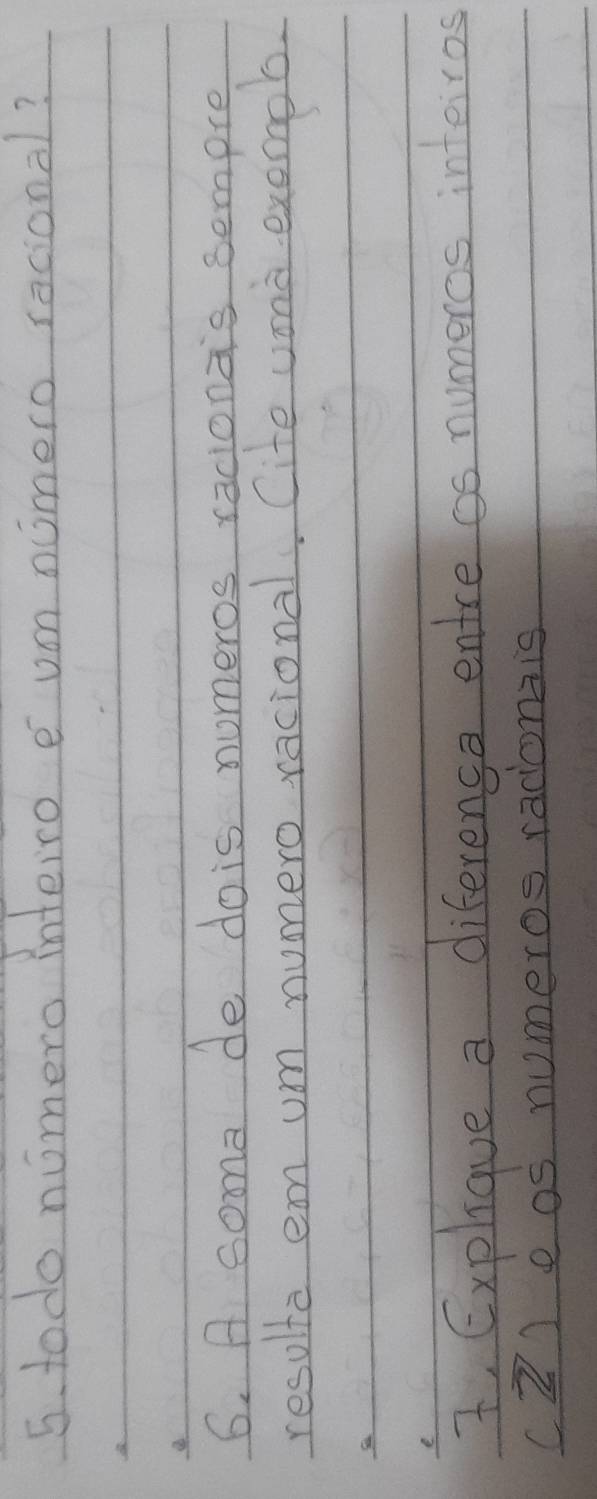 5. todo número inteiro é um número racional?
6. A soma de dois numeros racionais sempre
resulta em um numero racional. Cite uma exemplo.
7. Explique a diferença entre os numeros inteiros
(Z) e os numeros racionais